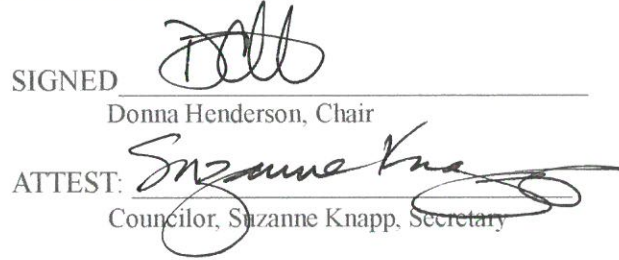 SIGNED
Donna Henderson, Chair
ATTEST: Suzanne Knapp
Councilor, Suzanne Knapp, Secretary